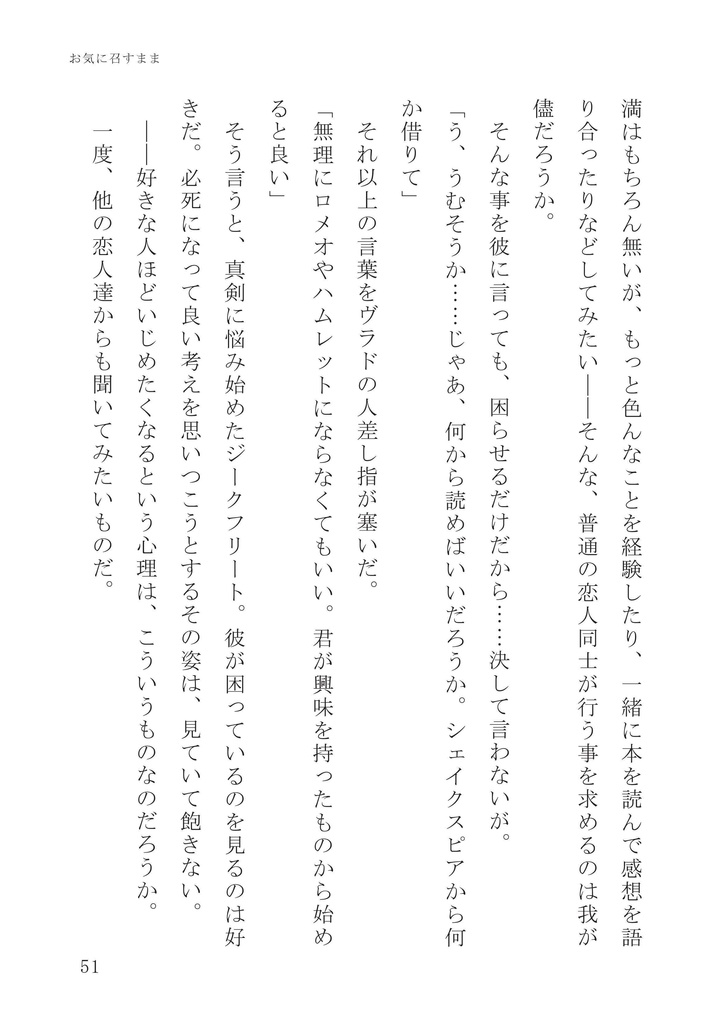 お気に召すまま
満はもちろん無いが、もっと色んなことを経験したり、一緒に本を読んで感想を語
り合ったりなどしてみたい――そんな、普通の恋人同士が行う事を求めるのは我が
儘だろうか。
そんな事を彼に言っても、困らせるだけだから……決して言わないが。
「う、うむそうか……じゃあ、何から読めばいいだろうか。シェイクスピアから何
か借りて」
それ以上の言葉をヴラドの人差し指が塞いだ。
「無理にロメオやハムレットにならなくてもいい。君が興味を持ったものから始め
ると良い」
そう言うと、真剣に悩み始めたジークフリート。彼が困っているのを見るのは好
きだ。必死になって良い考えを思いつこうとするその姿は、見ていて飽きない。
――好きな人ほどいじめたくなるという心理は、こういうものなのだろうか。
一度、他の恋人達からも聞いてみたいものだ。
51